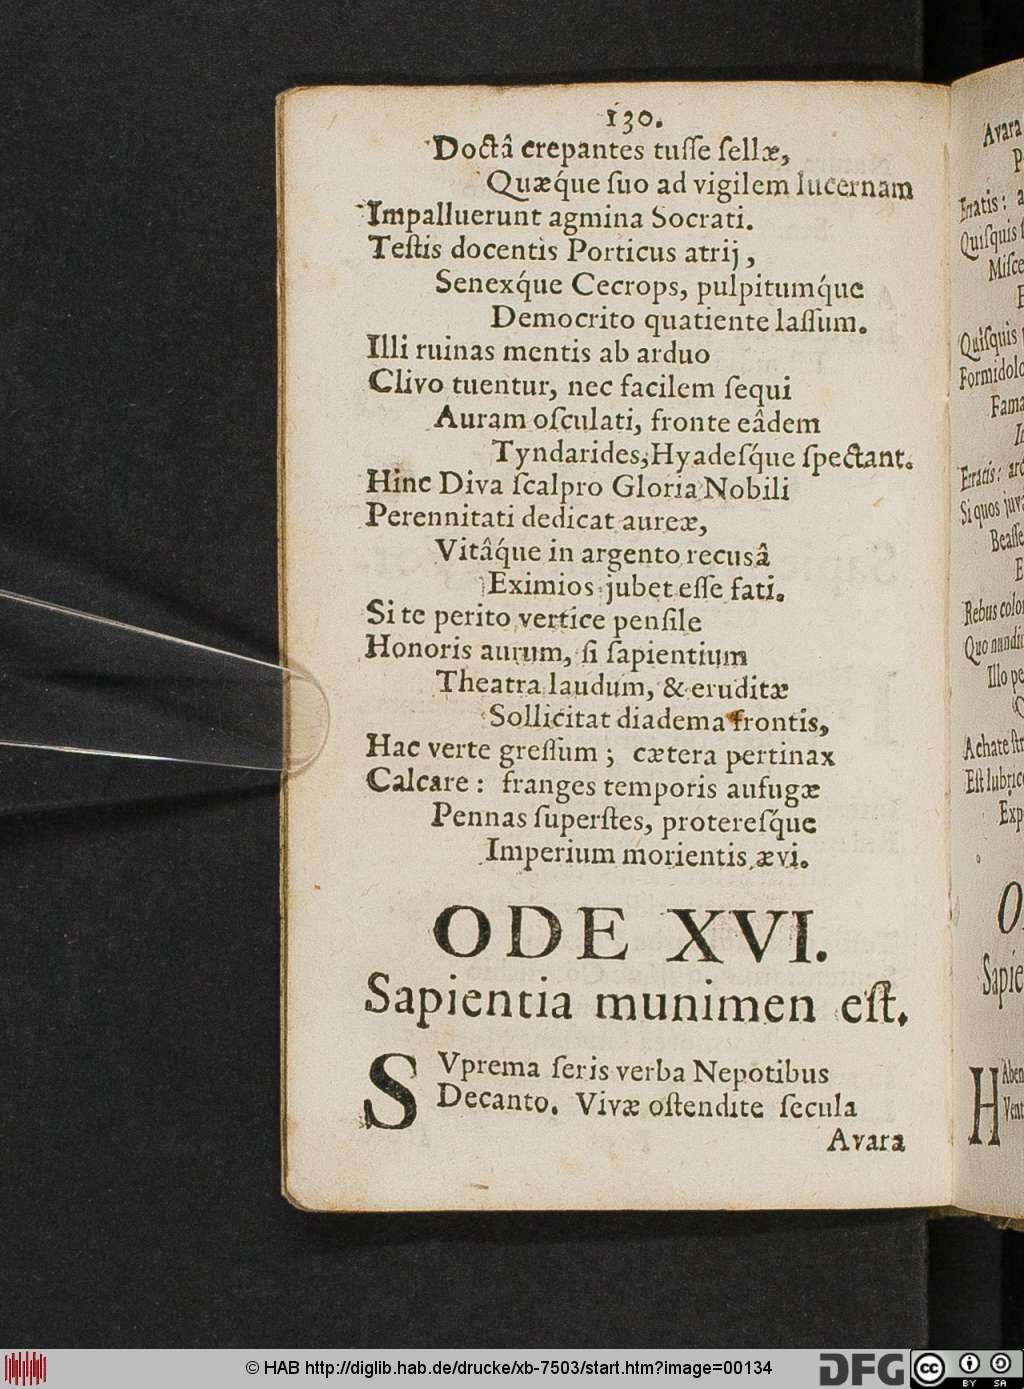 130.
Doctâ crepantes tuſſe ſellæ,
Quæq́ue ſuo ad vigilem lucernam
Impalluerunt agmina Socrati.
Teſtis docentis Porticus atrij,
Senexq́ue Cecrops, pulpitumq́ue
Democrito quatiente laſſum.
Illi ruinas mentis ab arduo
Clivo tuentur, nec facilem ſequi
Auram oſculati, fronte eâdem
Tyndarides, Hyadeſq́ue ſpectant.
Hinc Diva ſcalpro Gloria Nobili
Perennitati dedicat aureæ,
Vitâq́ue in argento recusâ
Eximios jubet eſſe fati.
Si te perito vertice penſile
Honoris aurum, ſi ſapientium
Theatra laudum, & eruditæ
Sollicitat diadema frontis,
Hac verte greſſum ; cætera pertinax
Calcare : franges temporis aufugæ
Pennas ſuperſtes, protereſq́ue
Imperium morientis ævi.
ODE XVI.
Sapientia munimen eſt.
SVprema ſeris verba Nepotibus
Decanto. Vivæ oſtendite ſecula
Avara
Avara
Erratis :
Quiſquis
Miſce
Quiſquis
Formidolo
Fama
Erratis :
Si quos juva
Beaſſe
Rebus color
Quo nundi
Illo pe
Achate ſtr
Eſt lubric
Exp
O
Sapie
HAben
Vent
© HAB http://diglib.hab.de/drucke/xb-7503/start.htm?image=00134
DFG
cc BY SA